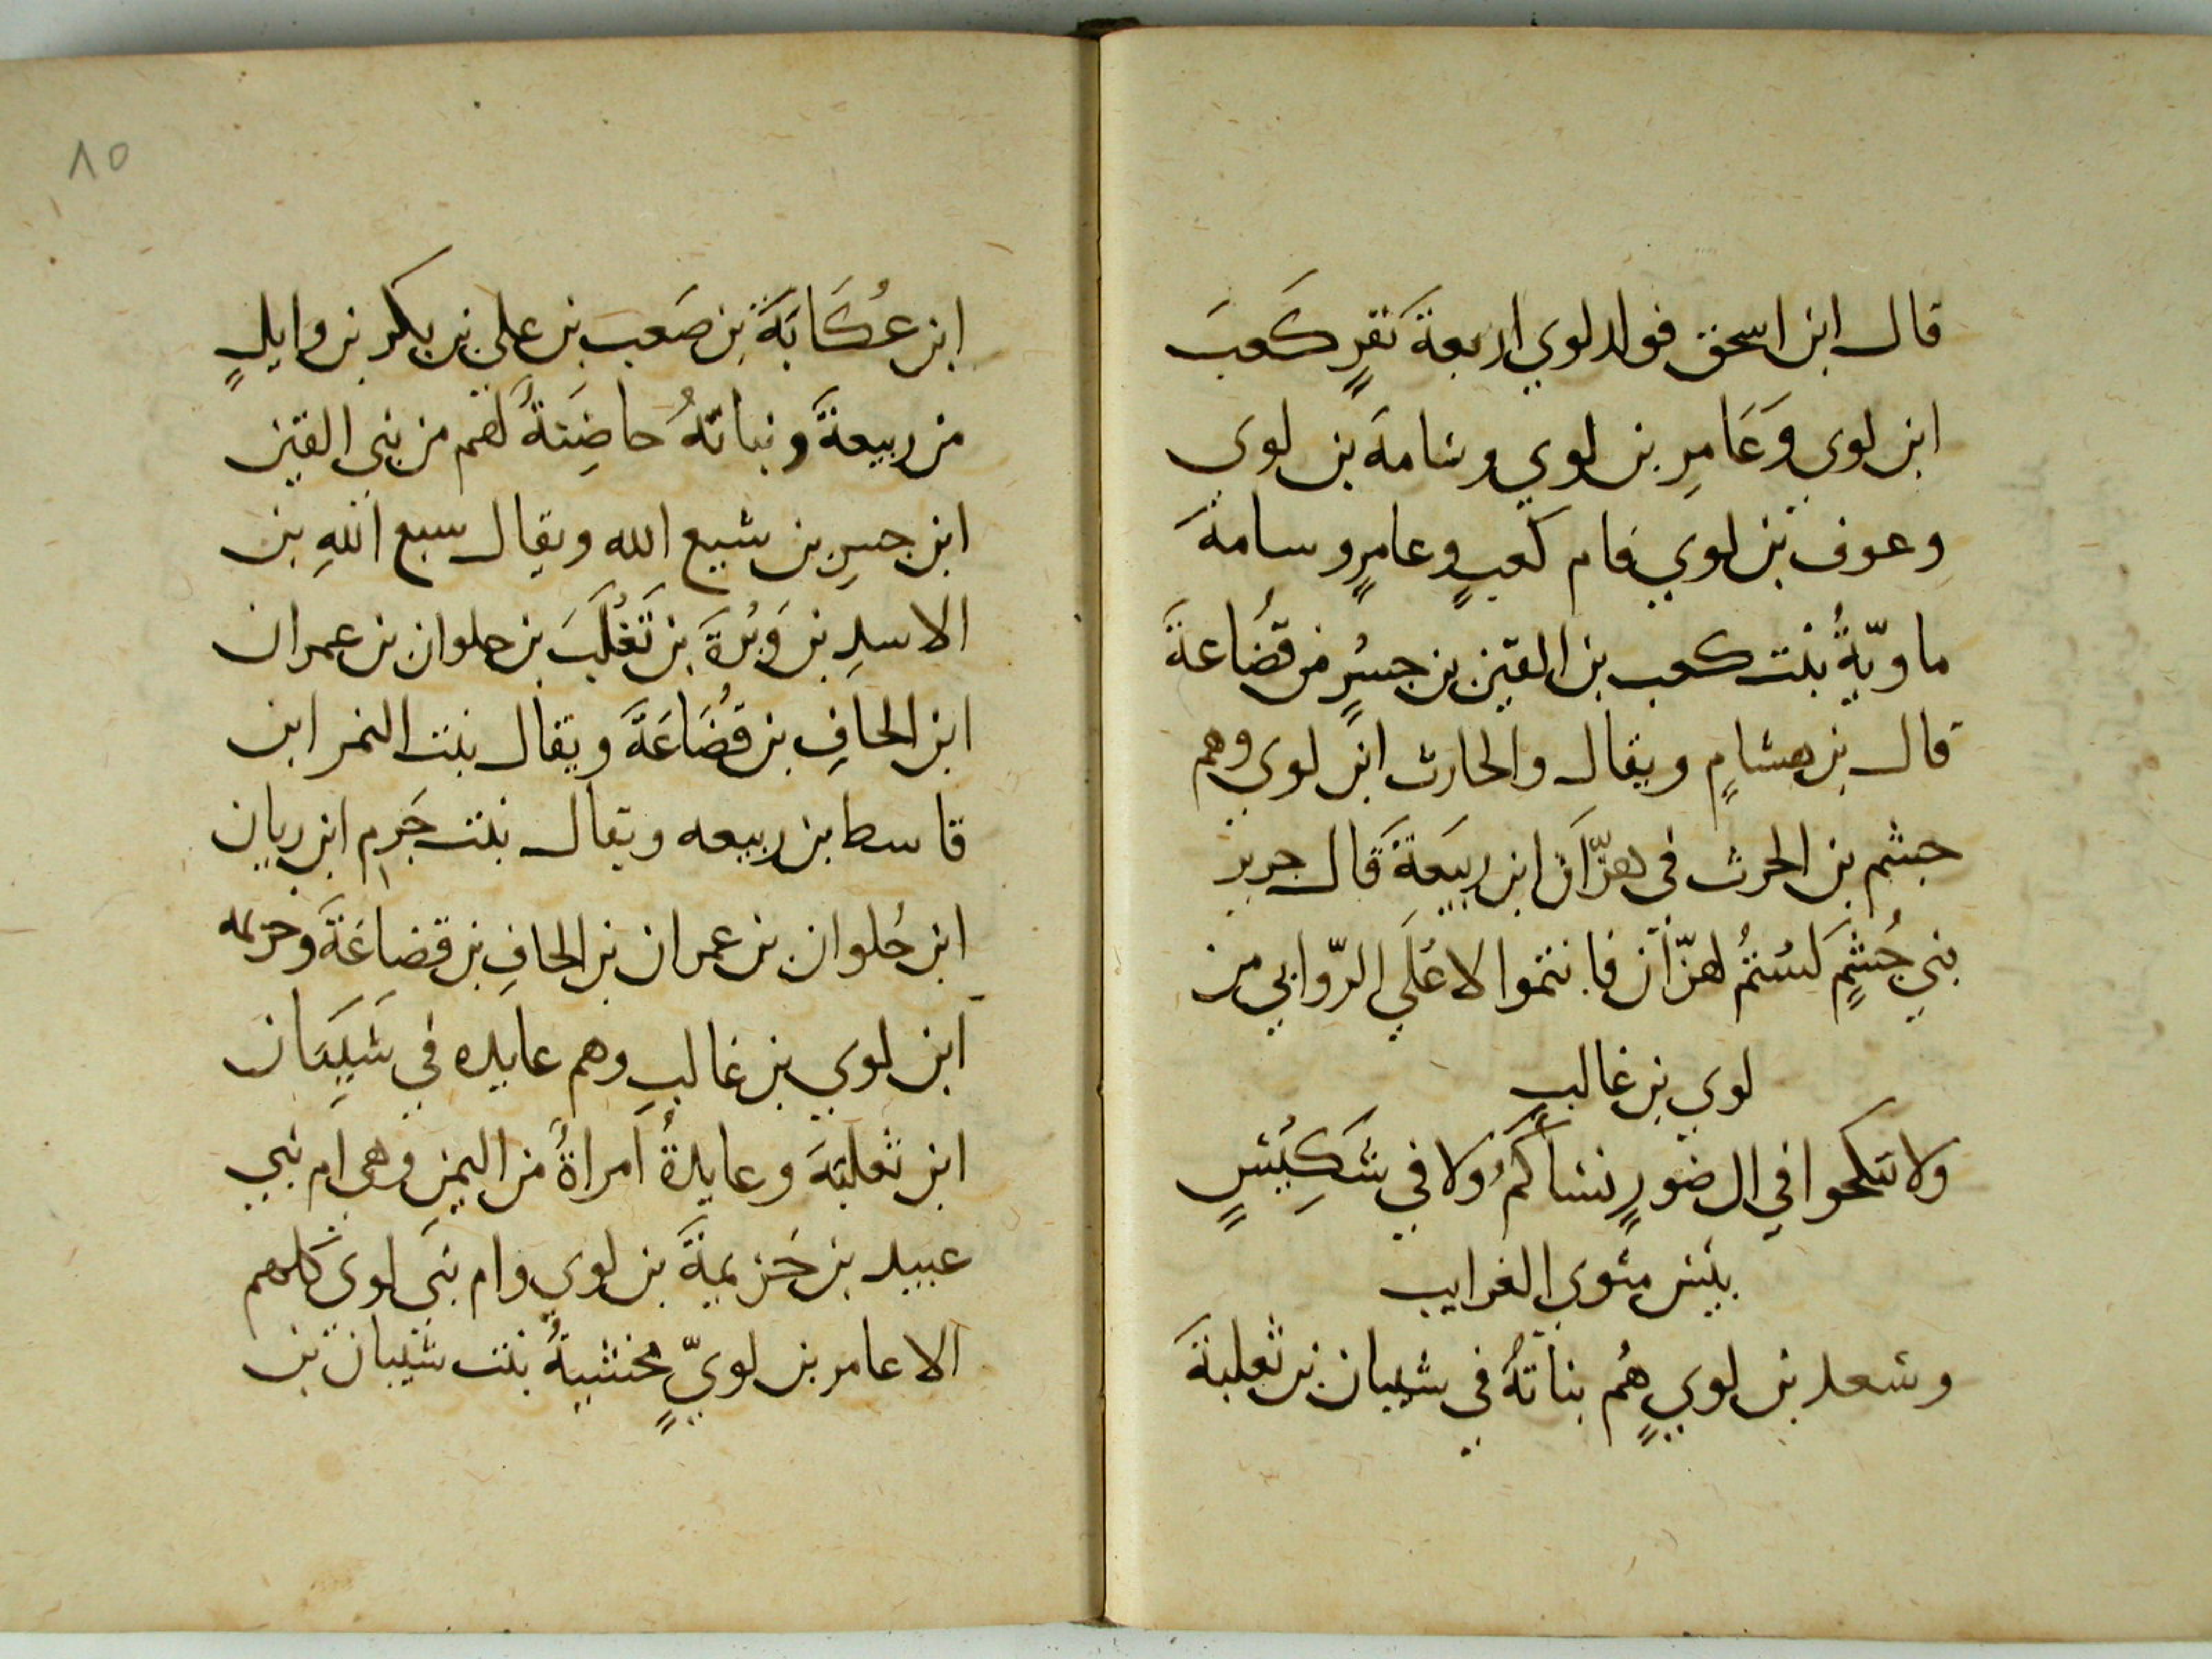 قال ابن اسحق فولد لوي اربعةَ نفرٍ كَعبَ
ابن لوي وَعَامِرِ بن لوي وسامه بن لوي
وعوف بن لوي فام كعبٍ وعامرٍ وسامةَ
ماويّةُ بنت كعب بن القين بن جسْرٍ من قضُاعةَ
قال بن هشامٍ ويقال والحارث ابن لوي وهم
جشم بن الحرث في هزّان ابن ربيعَةَ قال جرير
بني جُشمٍ لَستمُ لهزّان فانتموا لاعْلَي الرّوابي من
لوي بن غالبٍ
ولا تنكحوا في ال ضورٍ نسَاكمُ ولا في شَكِيْسٍ
بئس مثوي الغرايب
وسعد بن لويٍ هُم بناتهُ في شيبان بن ثعلبةَ
١٥
ابن عُكَابَةَ بن صَعب بن علي بن بكر بن وايلٍ
من ربيعةَ وبناتهُ حاضِنَةُ لهم من بني القين
ابن جسرِ بن شيع الله ويقال سبع اللهِ بن
الاسدِ بن وَبْرةَ بن تَغْلَبَ بن حلوان بن عمران
ابن الحافِ بن قضُاعَةَ ويقال بنت النمر ابن
قاسط بن ربيعه ويقال بنت جَرمِ ابن ربان
ابن حُلوان بن عمران بن الحافِ بن قضاعَةَ وخزيمه
ابن لوي بن غالبِ وهم عايده في شَيبَان
ابن ثعلبَه وعايدةُ امراةُ من اليمن وهي ام بني
عبيد بن خَزيمةَ بن لوي وام بني لوي كلهم
الا عامر بن لويٍّ مخشيةُ بنت شيبان بن